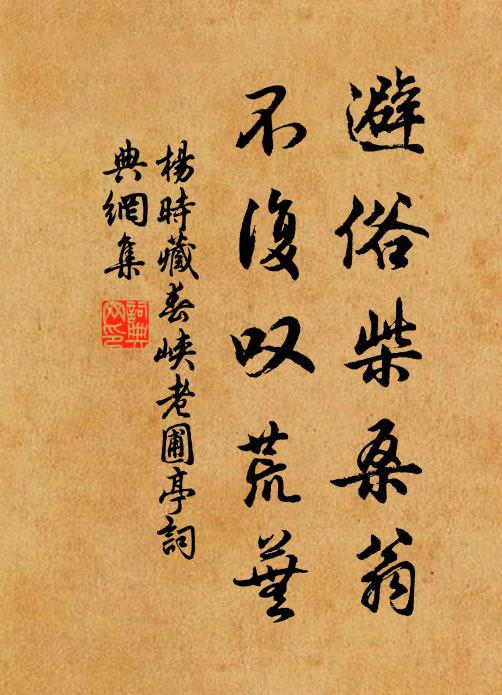 避俗柴桑翁
不復叹荒蕪
楊時藏春峡老圃亭詞
典網集
詞典网印